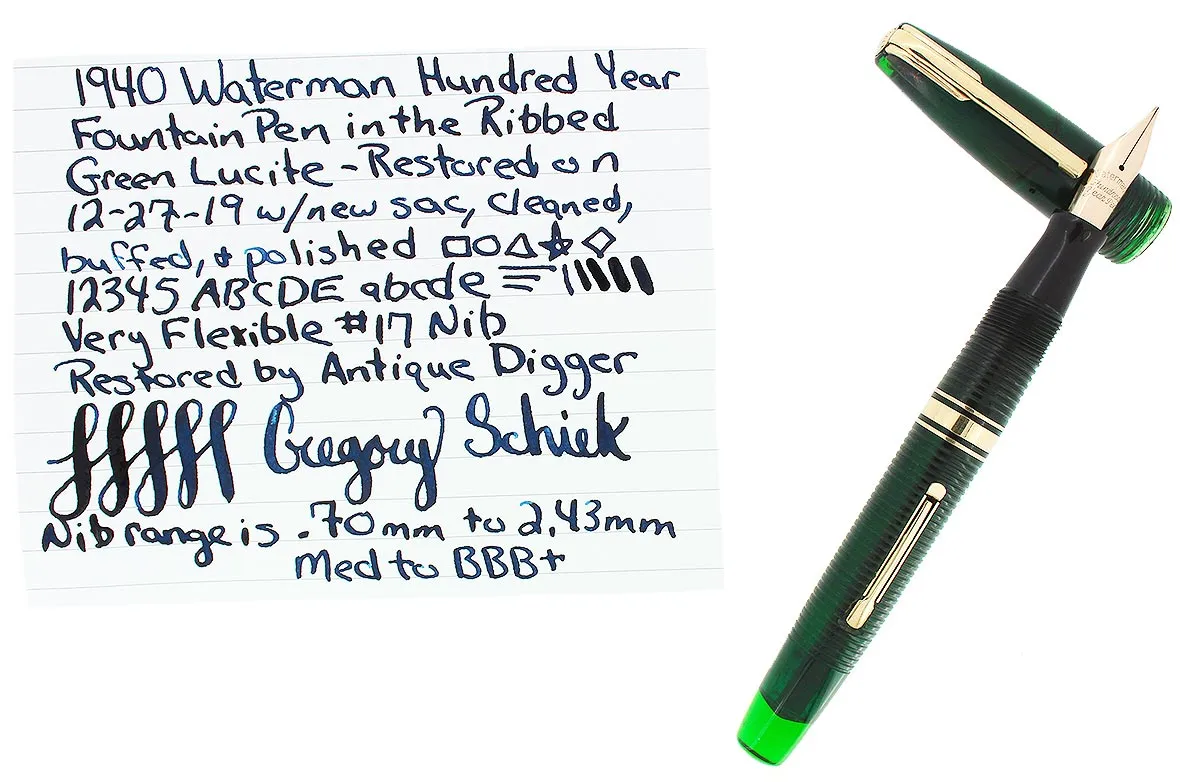 1940 Waterman Hundred Year
Fountain Pen in the Ribbed
Green Lucite - Restored on
12-27-19 w/new sac, cleaned,
buffed, + polished
12345 ABCDE abcde
Very Flexible #17 Nib
Restored by Antique Digger
Gregory Schiek
Nib range is .70mm to 2.43mm
Med to BBB+